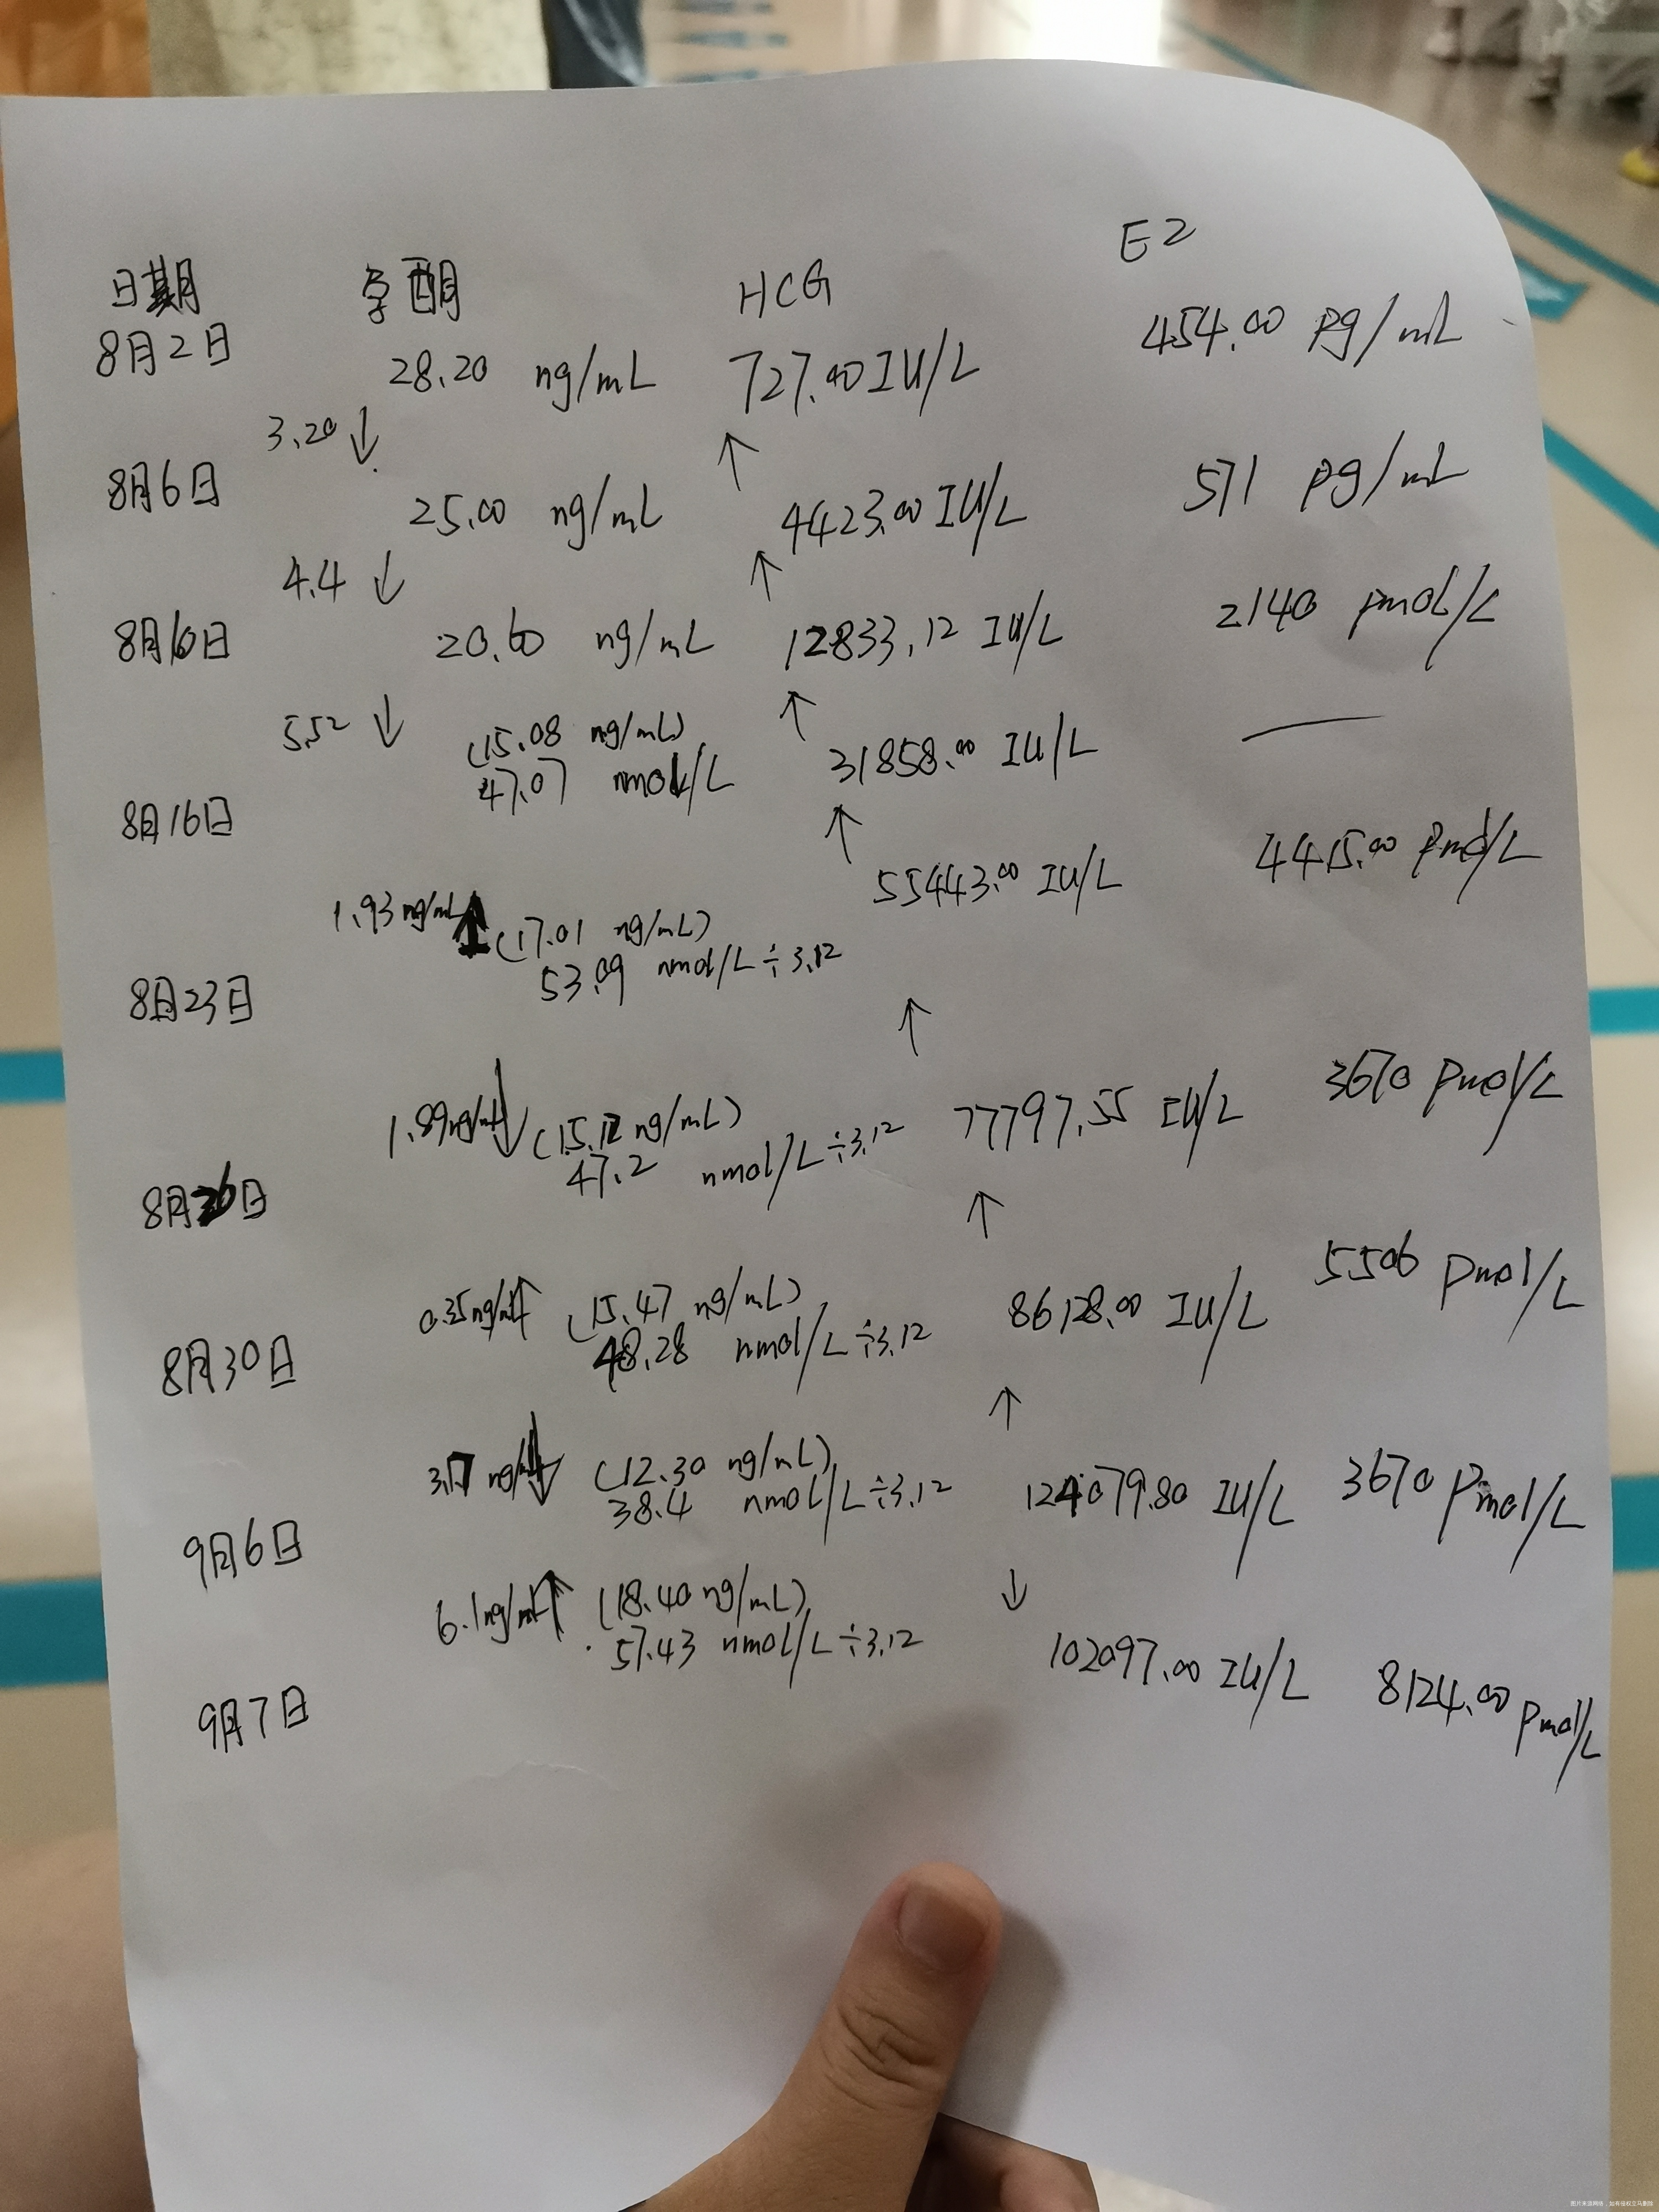 日期 孕酮 HCG E2
8月2日 28.20 ng/mL 727.00 IU/L 454.00 pg/mL
3.20 ↓ ↑
8月6日 25.00 ng/mL 4423.00 IU/L 571 pg/mL
4.4 ↓ ↑
8月10日 20.60 ng/mL 12833.12 IU/L 2140 pmol/L
5.52 ↓ (15.08 ng/mL) ↑
8月16日 47.07 nmol/L 31858.00 IU/L —
↑
1.93 ng/mL ↑ (17.01 ng/mL) 55443.00 IU/L 4415.00 pmol/L
8月23日 53.09 nmol/L ÷3.12
↑
1.89 ng/mL ↓ (15.12 ng/mL) 77797.55 IU/L 3670 pmol/L
8月26日 47.2 nmol/L ÷3.12
↑
0.35 ng/mL ↑ (15.47 ng/mL) 86128.00 IU/L 5506 pmol/L
8月30日 48.28 nmol/L ÷3.12
↑
3.17 ng/mL ↓ (12.30 ng/mL) 124079.80 IU/L 3670 pmol/L
9月6日 38.4 nmol/L ÷3.12
↓
6.1 ng/mL ↑ (18.40 ng/mL) 102097.00 IU/L 8124.00 pmol/L
9月7日 57.43 nmol/L ÷3.12
图片来源网络,如有侵权立马删除